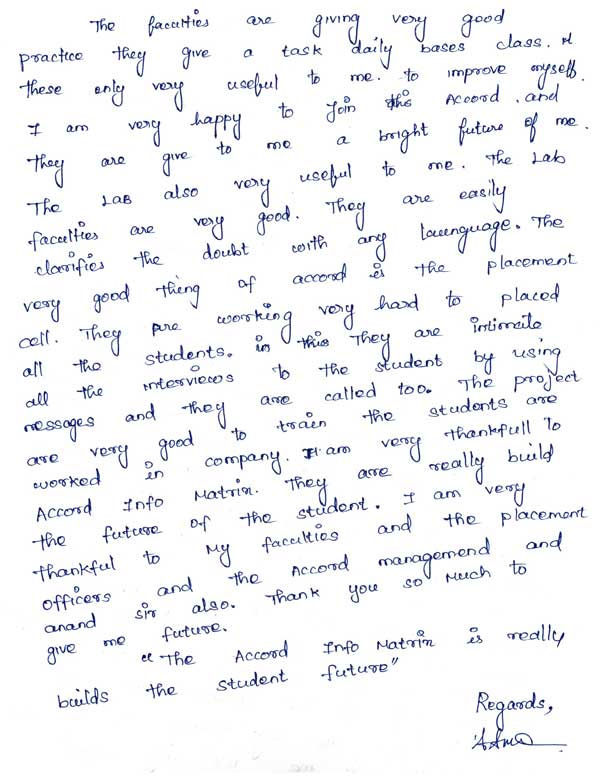 The faculties are giving very good
practice they give a task daily bases class.
these only very useful to me. to improve myself.
I am very happy to Join this Accord. and
they are give to me a bright future of me.
The LAB also very useful to me. The Lab
faculties are very good. They are easily
clarifies the doubt with any launguage. The
very good thing of accord is the placement
cell. They are working very hard to placed
all the students. in this They are intimate
all the interviews to the student by using
messages and they are called too. The project
are very good to train the students are
worked in company. I am very thankfull to
Accord Info Matrix. They are really build
the future of the student. I am very
thankful to My faculties and the placement
officers and the Accord managemend and
anand sir also. Thank you so Much to
give me future.
"The Accord Info Matrix is really
builds the student future"
Regards,